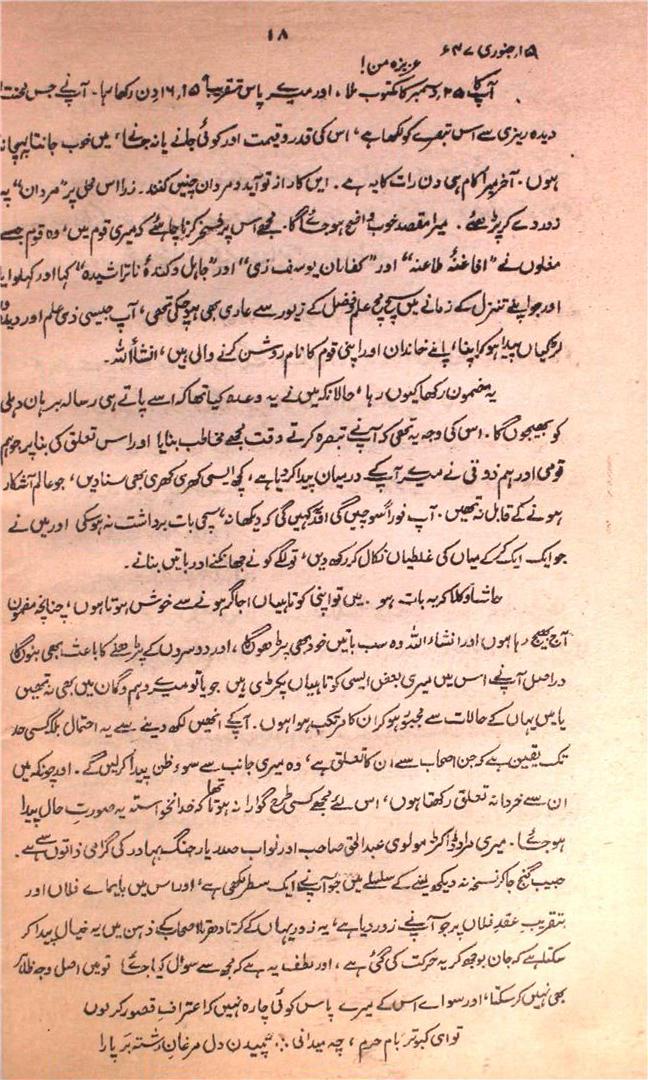 ۱۸
۱۵؍ جنوری ۴۷ء
عزیزہ من!
آپ کا ۲۵؍ دسمبر کا مکتوب ملا، اور میرے پاس تقریباً ۱۵، ۱۶ دن رکھا رہا۔ آپ نے جس محنت
دیدہ ریزی سے اس تبصرے کو لکھا ہے، اس کی قدر و قیمت اور کوئی جانے یا نہ جانے، میں خوب جانتا پہچانتا
ہوں۔ آخر میرا کام ہی دن رات کا یہ ہے۔ ایں کار از تو آید و مردان چنیں کنند۔ ذرا اس جملے پر "مردان" پہ
زور دے کر پڑھئے۔ میرا مقصد خوب واضح ہو جائے گا۔ مجھے اس پر فخر کرنا چاہئے کہ میری قوم میں، وہ قوم جسے
مغلوں نے "افاغنۂ طاعنہ" اور "کفاران یوسف زئی" اور "جاہل و کندۂ ناتراشیدہ" کہا اور کہلوایا
اور جو اپنے تنزل کے زمانے میں سچ مچ علم و فضل کے زیور سے عاری بھی ہو چکی تھی، آپ جیسی ذی علم اور دیدہ
لڑکیاں پیدا ہو کر اپنا، اپنے خاندان اور اپنی قوم کا نام روشن کرنے والی ہیں، انشاء اللہ۔
یہ مضمون رکھا کیوں رہا، حالانکہ میں نے یہ وعدہ کیا تھا کہ اسے پاتے ہی رسالہ برہان دہلی
کو بھیجوں گا۔ اس کی وجہ یہ تھی کہ آپ نے تبصرہ کرتے وقت مجھے مخاطب بنایا اور اس تعلق کی بنا پر جو ہم
قومی اور ہم ذوقی نے میرے آپ کے درمیان پیدا کر دیا ہے، کچھ ایسی کھری کھری بھی سنا دیں، جو عالم آشکار
ہونے کے قابل نہ تھیں۔ آپ فوراً سوچیں گی اور کہیں گی کہ دیکھا نہ، سچی بات برداشت نہ ہو سکی اور میں نے
جو ایک ایک کر کے میاں کی غلطیاں نکال کر رکھ دیں، تو لگے کونے جھانکنے اور باتیں بنانے۔
حاشا و کلا کہ یہ بات ہو۔ میں تو اپنی کوتاہیاں اجاگر ہونے سے خوش ہوتا ہوں، چنانچہ مضمون
آج بھیج رہا ہوں اور انشاء اللہ وہ سب باتیں خود بھی پڑھوں گا، اور دوسروں کے پڑھنے کا باعث بھی بنوں گا
دراصل آپ نے اس میں میری بعض ایسی کوتاہیاں پکڑی ہیں جو یا تو میرے وہم و گمان میں بھی نہ تھیں
یا میں یہاں کے حالات سے مجبور ہو کر ان کا مرتکب ہوا ہوں۔ آپ کے انھیں لکھ دینے سے یہ احتمال بلکہ کسی حد
تک یقین ہے کہ جن اصحاب سے ان کا تعلق ہے، وہ میری جانب سے سوءِ ظن پیدا کر لیں گے۔ اور چونکہ میں
ان سے خردانہ تعلق رکھتا ہوں، اس لئے مجھے کسی طرح گوارا نہ ہوتا تھا کہ خدانخواستہ یہ صورتِ حال پیدا
ہو جائے۔ میری مراد ڈاکٹر مولوی عبدالحق صاحب اور نواب صدر یار جنگ بہادر کی گرامی ذاتوں سے ہے۔
حبیب گنج جا کر نسخہ نہ دیکھ لینے کے سلسلے میں جو آپ نے ایک سطر لکھی ہے، اور اس میں بایمائے فلاں اور
بتقریب عقدِ فلاں پر جو آپ نے زور دیا ہے، یہ زور یہاں کے کرتا دھرتا اصحاب کے ذہن میں یہ خیال پیدا کر
سکتا ہے کہ جان بوجھ کر یہ حرکت کی گئی ہے، اور لطف یہ ہے کہ مجھ سے سوال کیا جائے تو میں اصل وجہ ظاہر
بھی نہیں کر سکتا، اور سوائے اس کے میرے پاس کوئی چارہ نہیں کہ اعترافِ قصور کر لوں
تو ای کبوتر بام حرم، چہ میدانی ∴ تپیدن دل مرغانِ رشتہ بر پا را